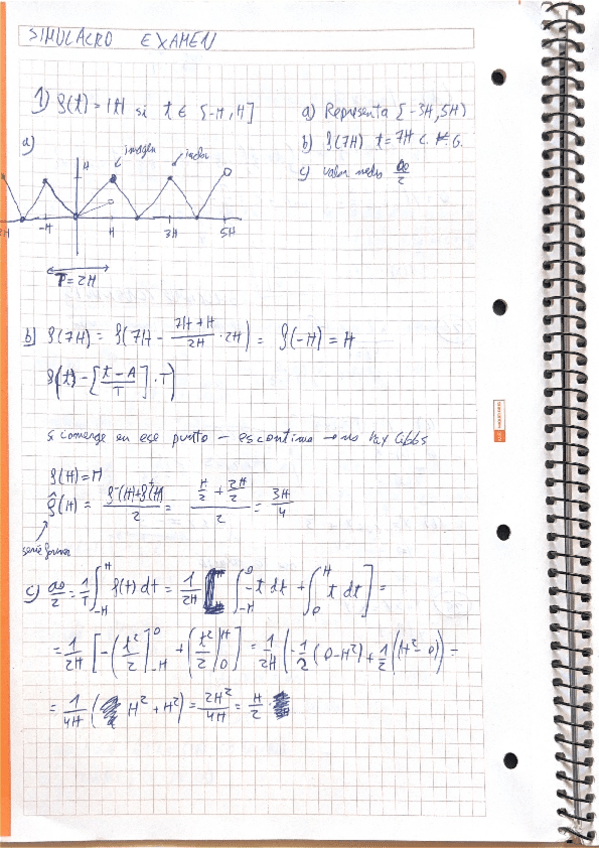 SIMULACRO EXAMEN
1) f(t) = |t| si t ∈ [-H, H]
a) Representa [-3H, 5H)
b) f(7H) t = 7H c. G.
c) valor medio a0/2
a)
H
imagen
-H H 3H 5H
T = 2H
b) f(7H) = f(7H - 7H+H/2H · 2H) = f(-H) = H
f(t) - [t-A/T] · T)
Si converge en ese punto - es continua → no hay Gibbs
f(H) = H
f̂(H) = f⁻(H)+f⁺(H)/2 = H/2 + 2H/2 / 2 = 3H/4
serie fourier
c) a0/2 = 1/T ∫_{-H}^{H} f(t) dt = 1/2H [∫_{-H}^{0} -t dt + ∫_{0}^{H} t dt] =
= 1/2H [-(t²/2]_{-H}^{0} + (t²/2|_{0}^{H}] = 1/2H (-1/2 (0-H²) + 1/2 (H²-0) =
= 1/4H (H² + H²) = 2H²/4H = H/2